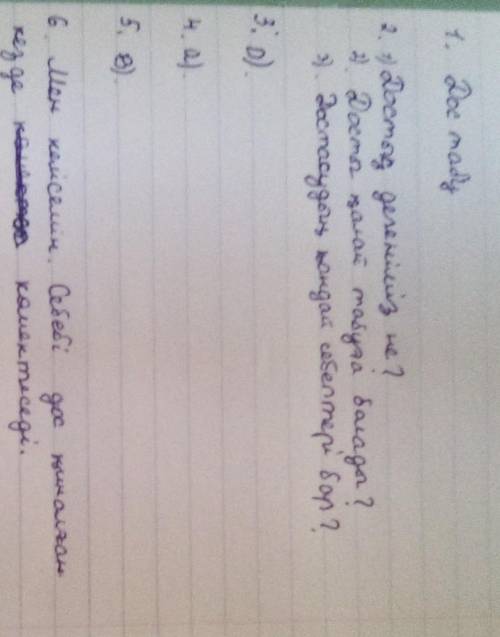 1. Дос табу
2. 1) Достық дегеніміз не?
2). Досты қалай табуға болады?
3). Достасудың қандай себептері бар?
3. D).
4. A).
5. B).
6. Мен келісемін. Себебі дос қиналған
кезде көмектиседі.